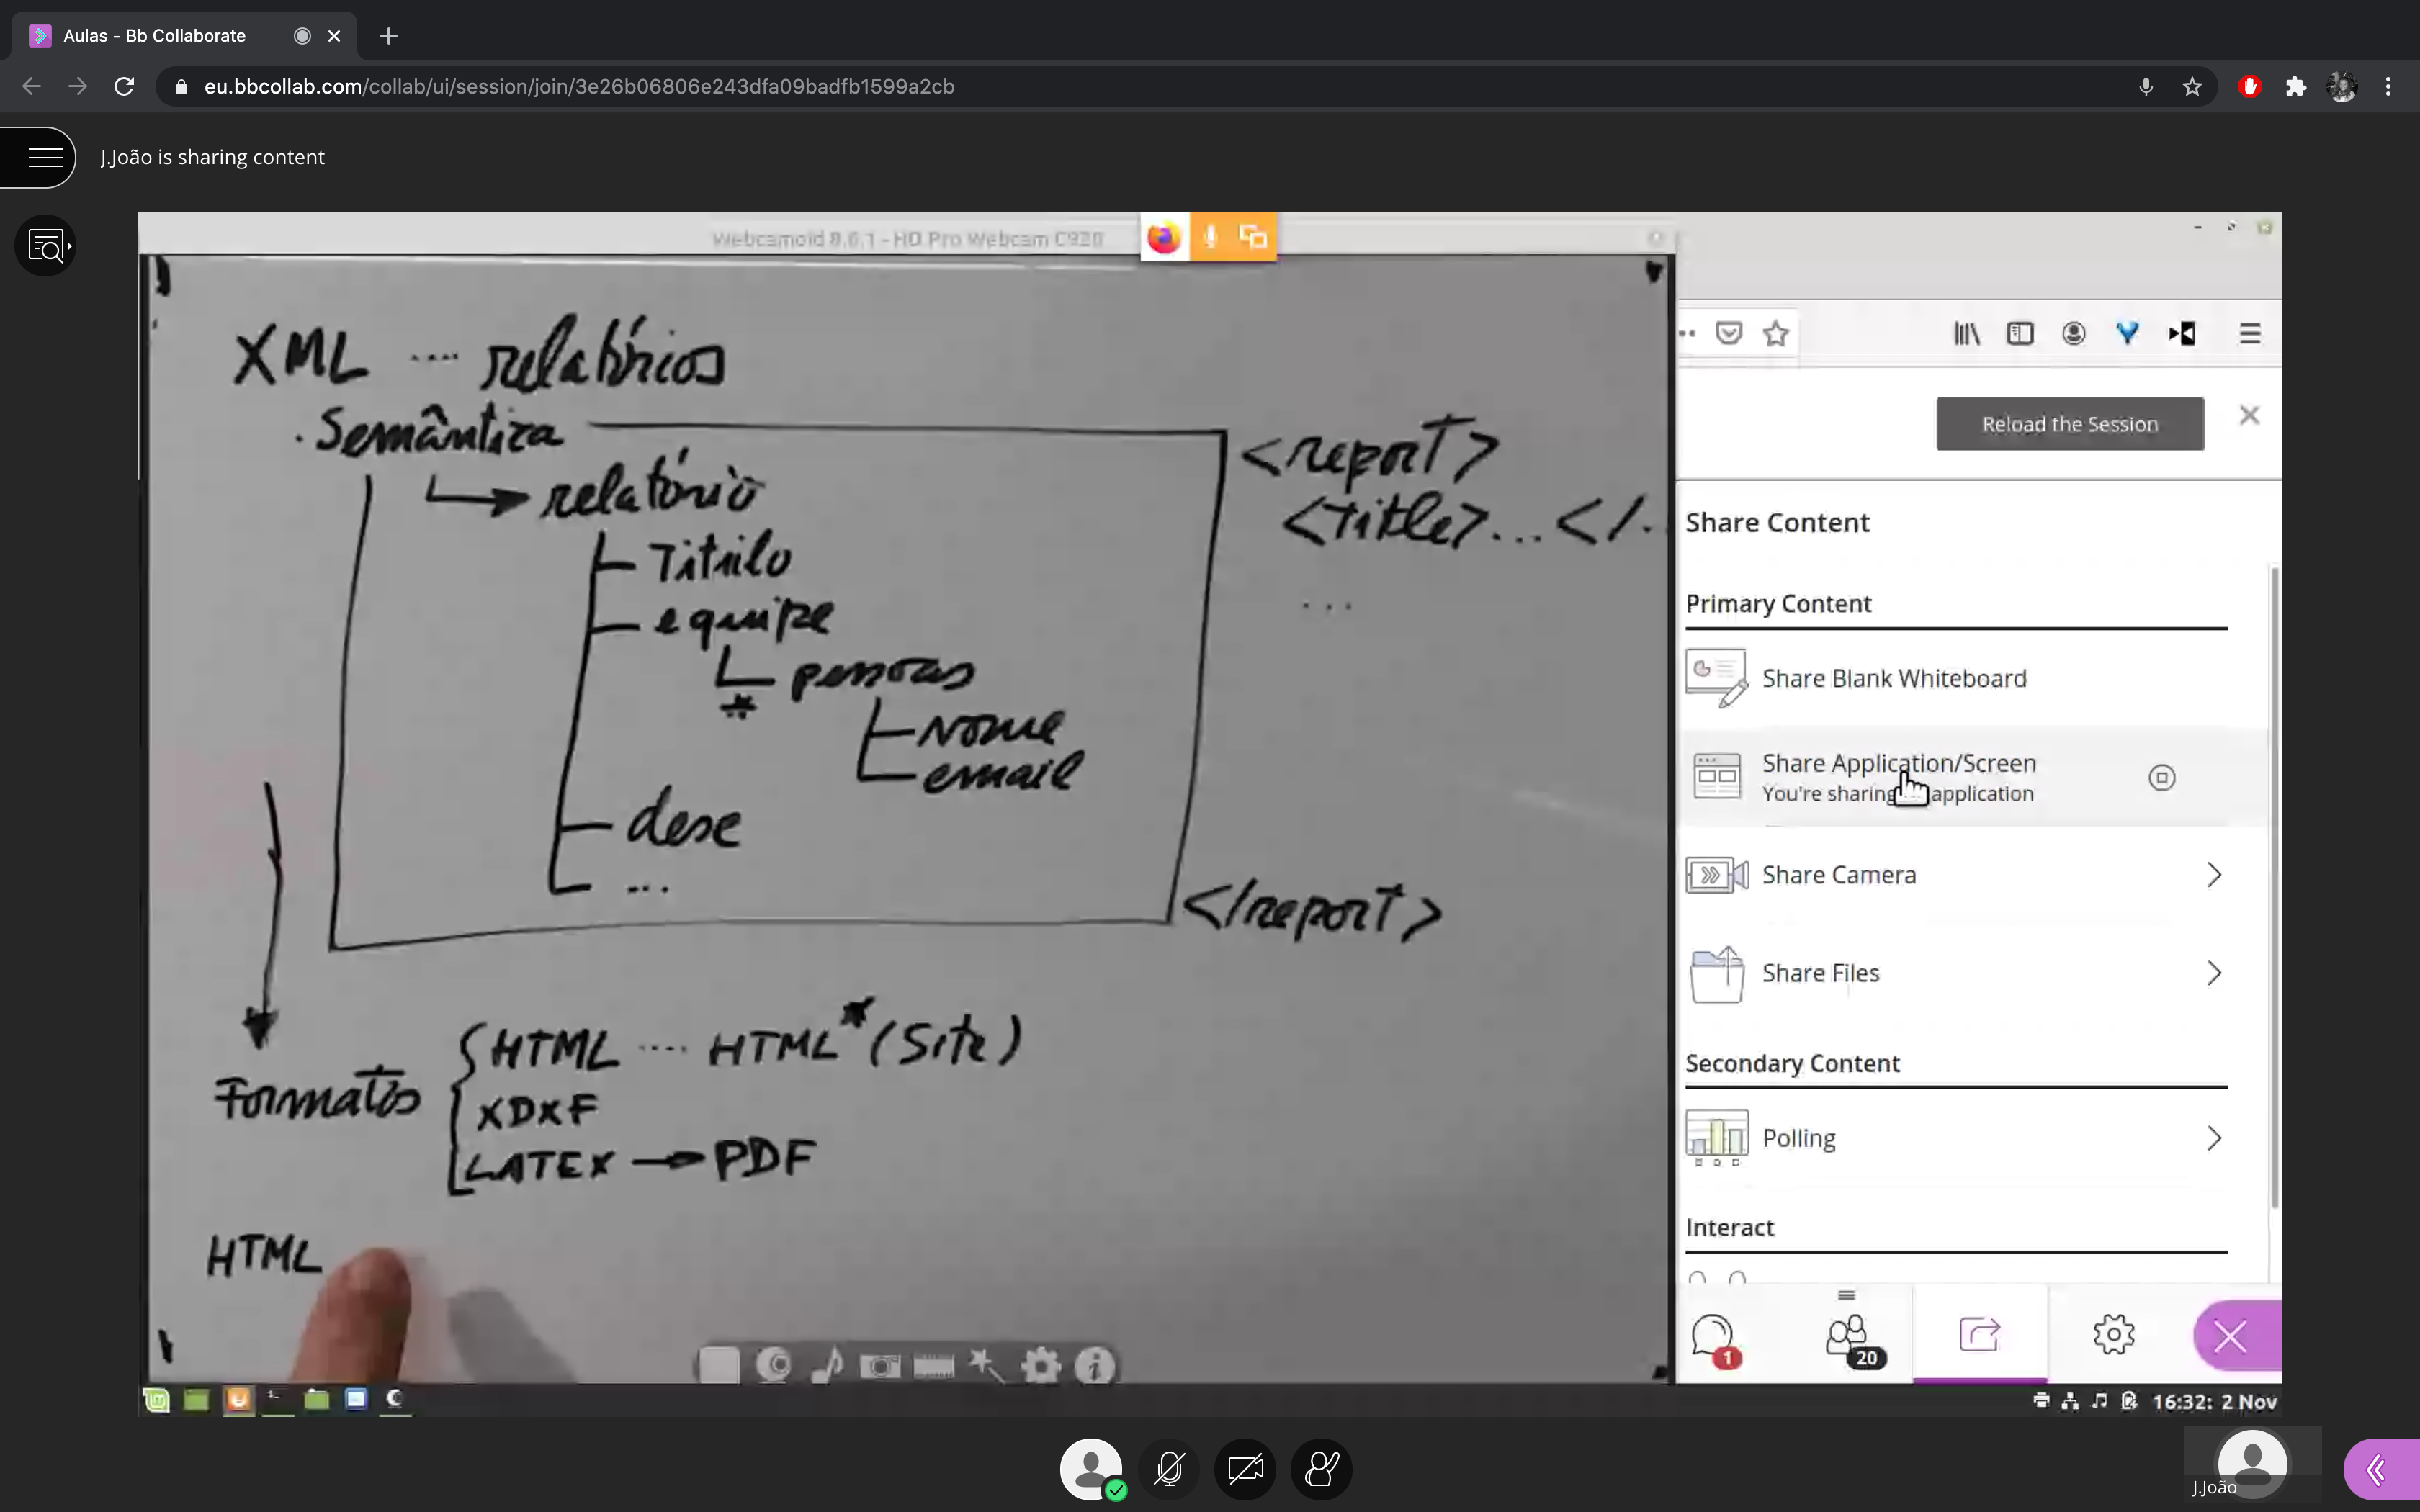 Aulas - Bb Collaborate
eu.bbcollab.com/collab/ui/session/join/3e26b06806e243dfa09badfb1599a2cb
J.João is sharing content
Webcamoid 8.6.1 - HD Pro Webcam C920
XML .... relatórios
. Semântica
relatório
Titulo
equipe
* pessoas
Nome
email
desc
...
<report>
<title>... </..
...
</report>
Formatos
HTML .... HTML* (Site)
XDXF
LATEX → PDF
HTML
Reload the Session
Share Content
Primary Content
Share Blank Whiteboard
Share Application/Screen
You're sharing application
Share Camera
Share Files
Secondary Content
Polling
Interact
1
20
16:32: 2 Nov
J.João